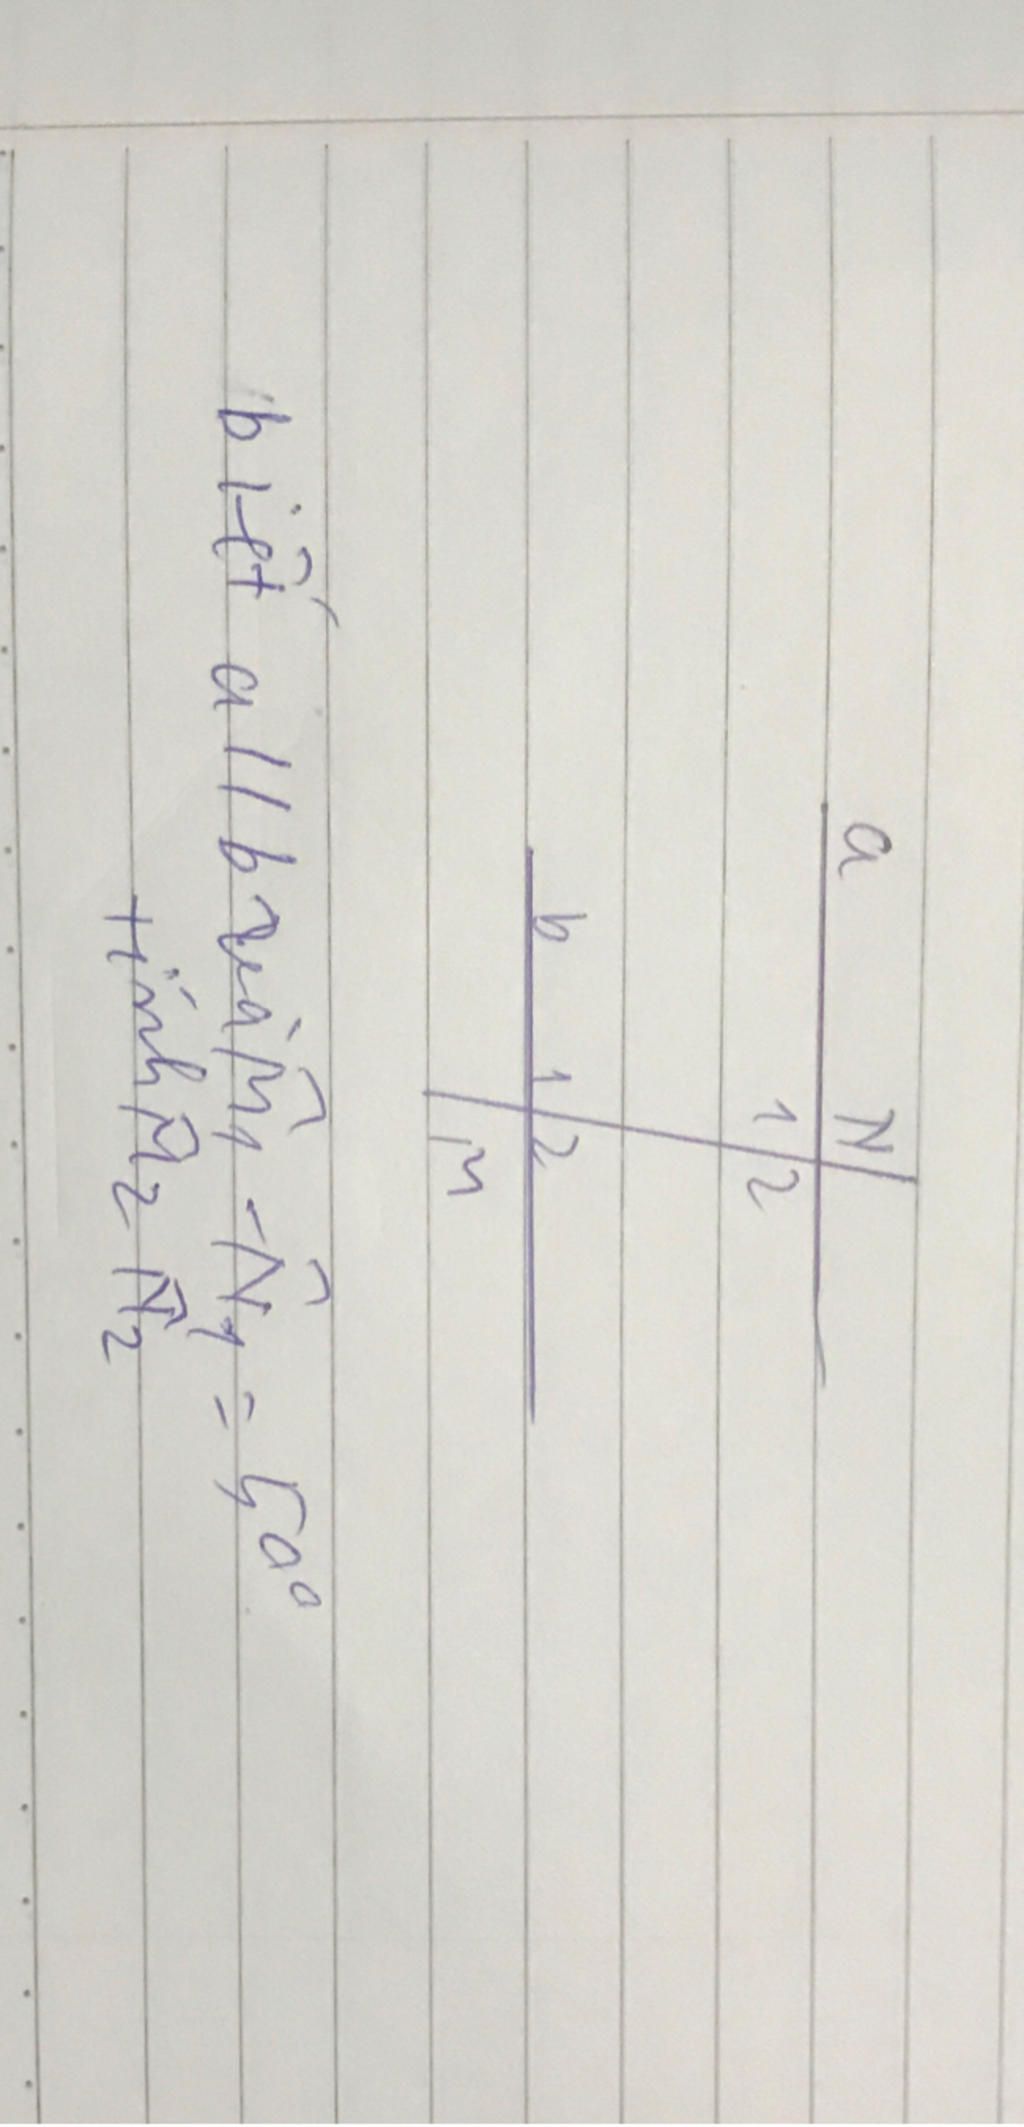 a
N
1 2
b 1 2
M
biết a//b và M̂₁ - N̂₁ = 50°
tính M̂₂ N̂₂